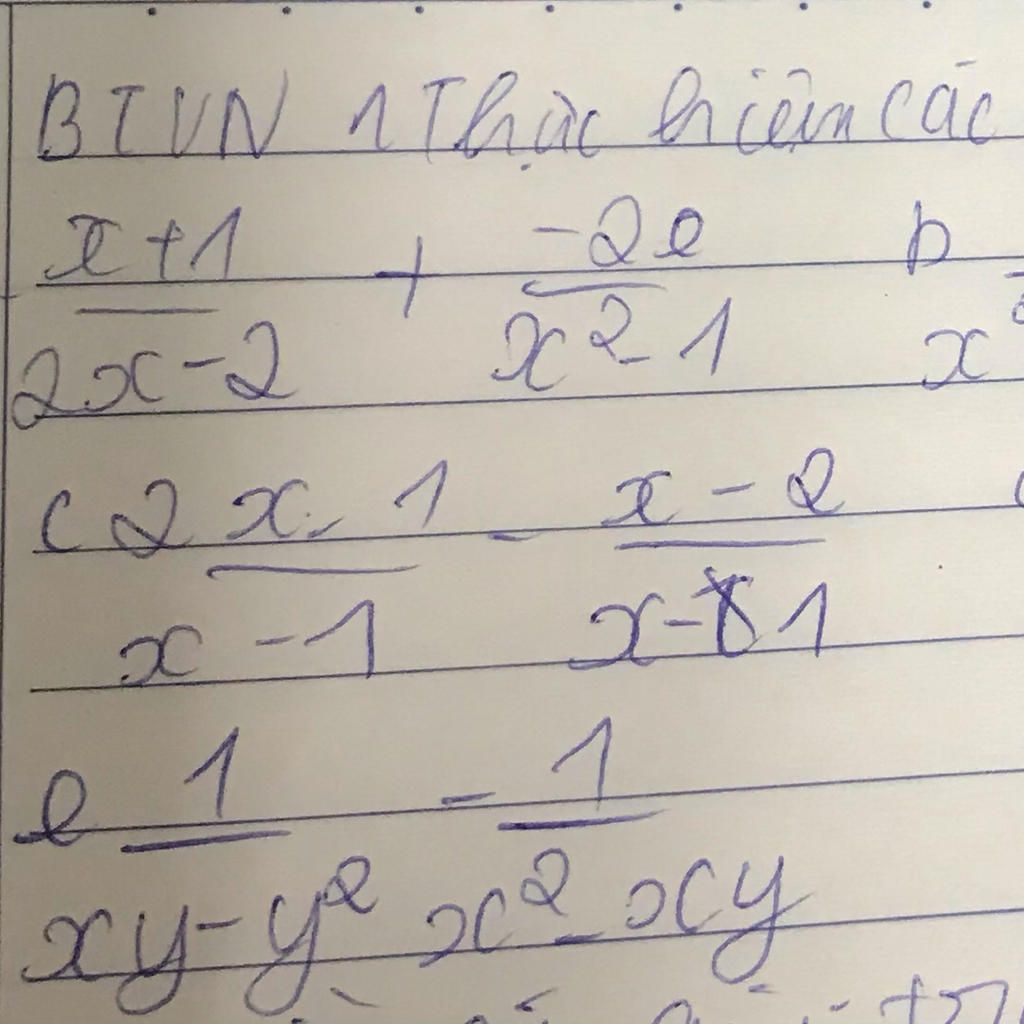 BTVN 1 Thực hiện các
x+1 + -2x b
2x-2 x²-1 x
c 2x-1 - x-2
x-1 x-1
e 1 - 1
xy-y² x²-xy